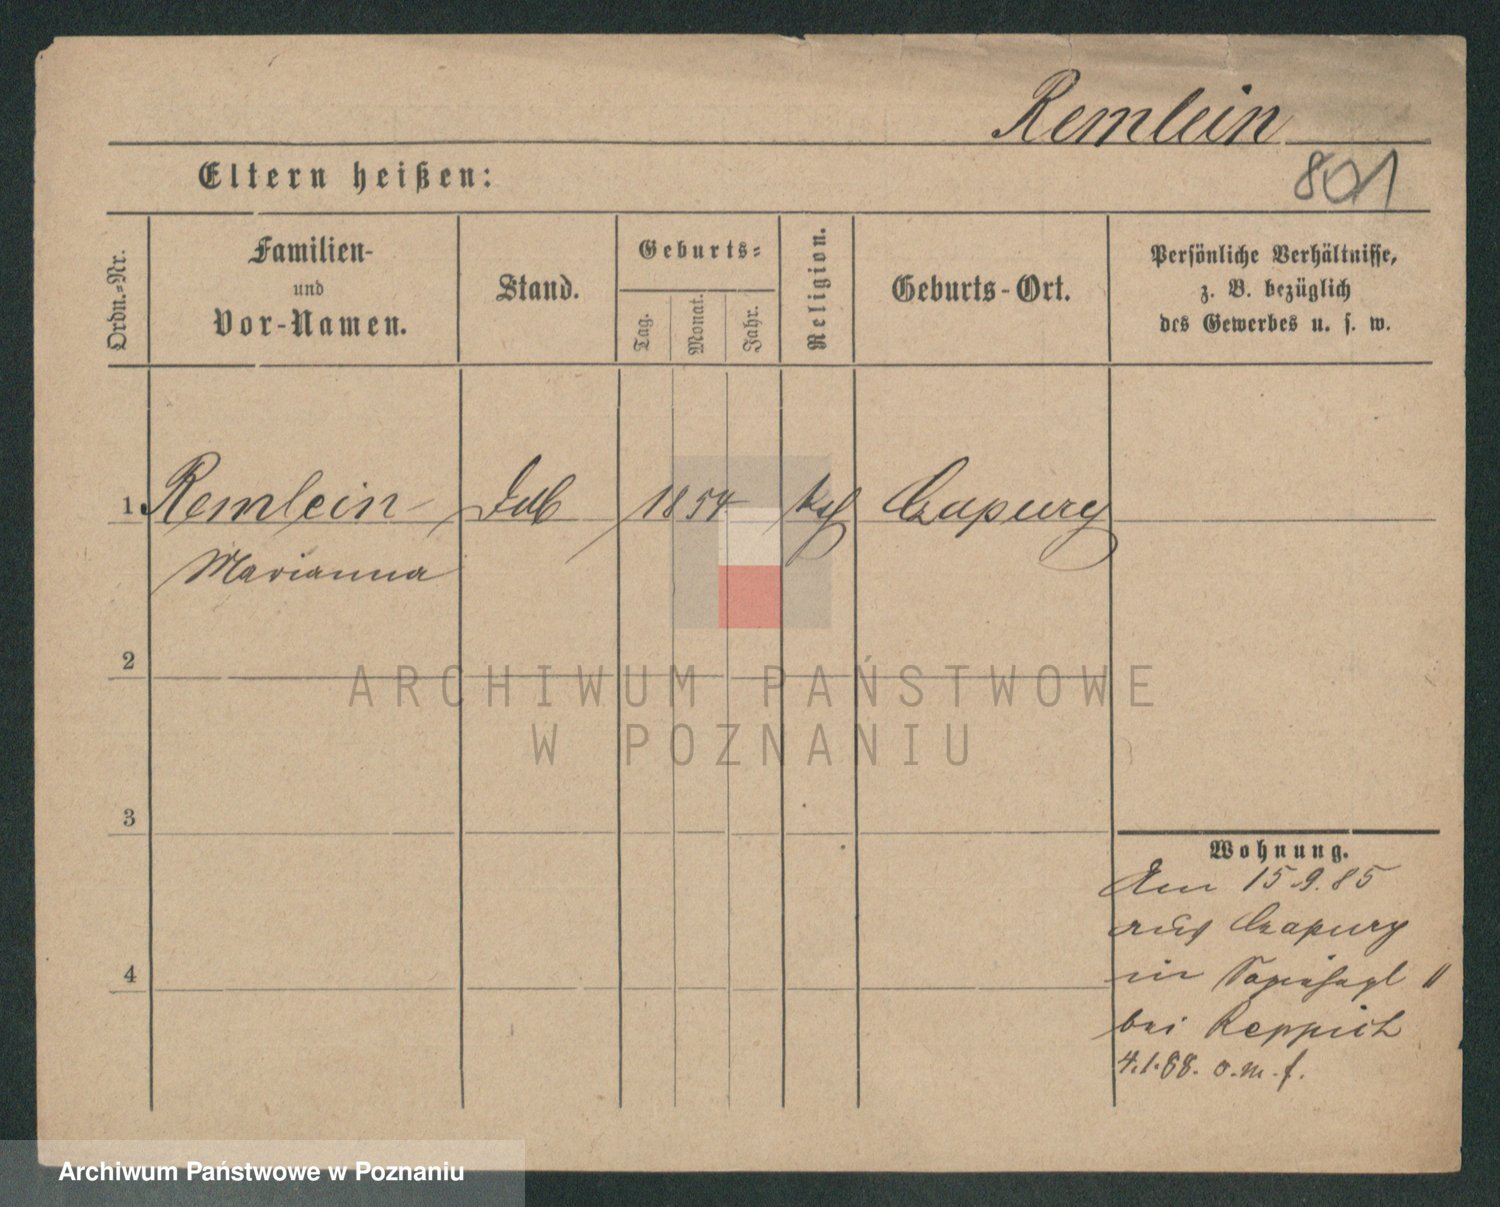 Remlein
801
Eltern heißen:
Ordn.-Nr.
Familien-
und
Vor-Namen.
Stand.
Geburts-
Tag.
Monat.
Jahr.
Religion.
Geburts-Ort.
Persönliche Verhältnisse,
z. B. bezüglich
des Gewerbes u. s. w.
1. Remlein 1854 kth Czapury
Marianna
2
ARCHIWUM PAŃSTWOWE
W POZNANIU
3
Wohnung.
Am 15.9.85
aus Czapury
in 11
4
bei Reppich
4.1.88. o.m.f.
Archiwum Państwowe w Poznaniu